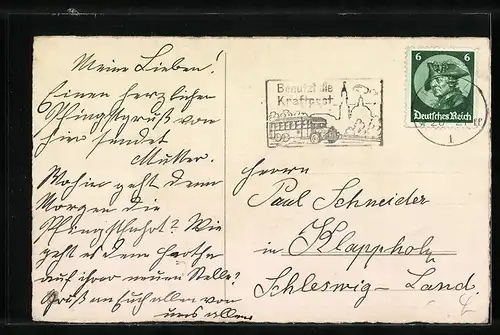 Meine Lieben!
Einen herzlichen
Pfingstgruß von
hier sendet
Mutter.
Wohin geht denn
Morgen die
Pfingstfahrt? Wie
geht es denn
auf ihrer neuen Stelle?
Gruß an Euch allen von
uns allen
Benutzt die
Kraftpost
6 6
Deutsches Reich
1
Herrn
Paul Schneider
in Klappholz
Schleswig-Land.